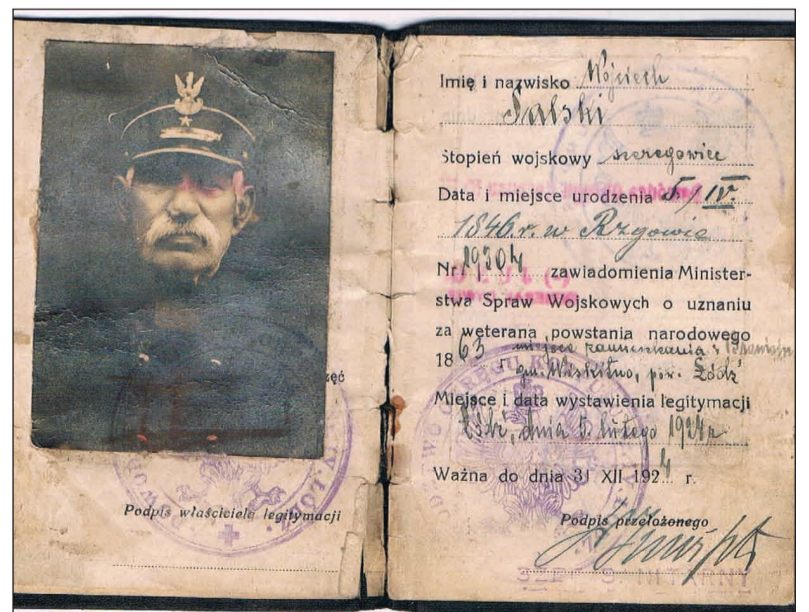 Podpis właściciela legitymacji
Imię i nazwisko Wojciech
Salski
Stopień wojskowy szeregowiec
Data i miejsce urodzenia 5/IV.
1846.r. w Rzgowie
Nr. zawiadomienia Minister-
stwa Spraw Wojskowych o uznaniu
za weterana powstania narodowego
1863 r. miejsce zamieszkania
gm. Wiskitno, pow. Łódź
Miejsce i data wystawienia legitymacji
Łódź, dnia 5. lutego 1924 r.
Ważna do dnia 31 XII 1924 r.
Podpis przełożonego